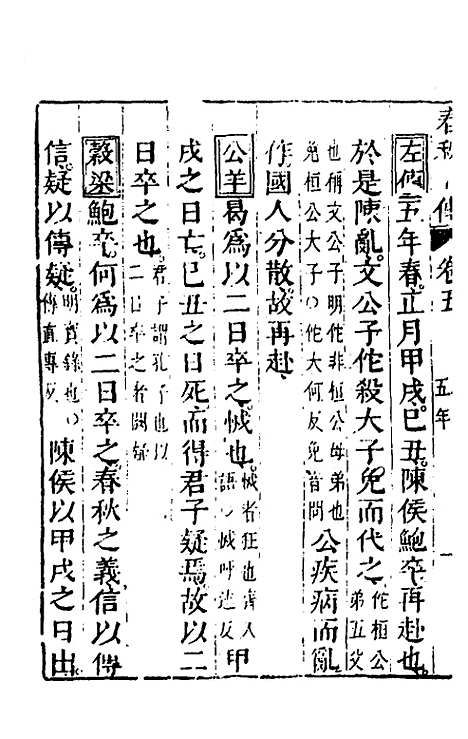 春秋傳 卷五 五年 一
左傳五年春。正月甲戌。己丑。陳侯鮑卒。再赴也。
於是陳亂。文公子佗殺大子免而代之。佗桓公弟五父
也稱文公子明佗非桓公母弟也免桓公大子○佗大何反免音問公疾病而亂
作國人分散。故再赴
公羊曷爲以二日卒之。怴也。怴者狂也齊人語○怴呼述反甲
戌之日亡。己丑之日死而得君子疑焉。故以二
日卒之也。君子謂孔子也以二日卒之者闕疑
穀梁鮑卒。何爲以二日卒之。春秋之義。信以傳
信。疑以傳疑。明實錄也○傳直專反陳侯以甲戌之日出